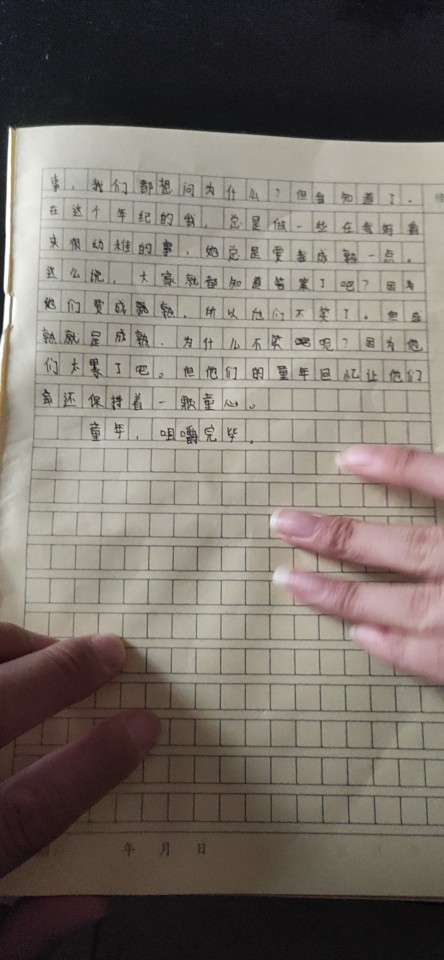 事，我们都想问为什么？但我知道了。
在这个年纪的我，总是做一些在我妈看
来很幼稚的事，她总是要我成熟一点。
这么说，大家就都知道答案了吧？因为
她们要成熟，所以他们不笑了。但成
熟就是成熟，为什么不笑呢？因为他
们太累了吧。但他们的童年回忆让他们
还保持着一颗童心。
童年，咀嚼完毕。
年 月 日